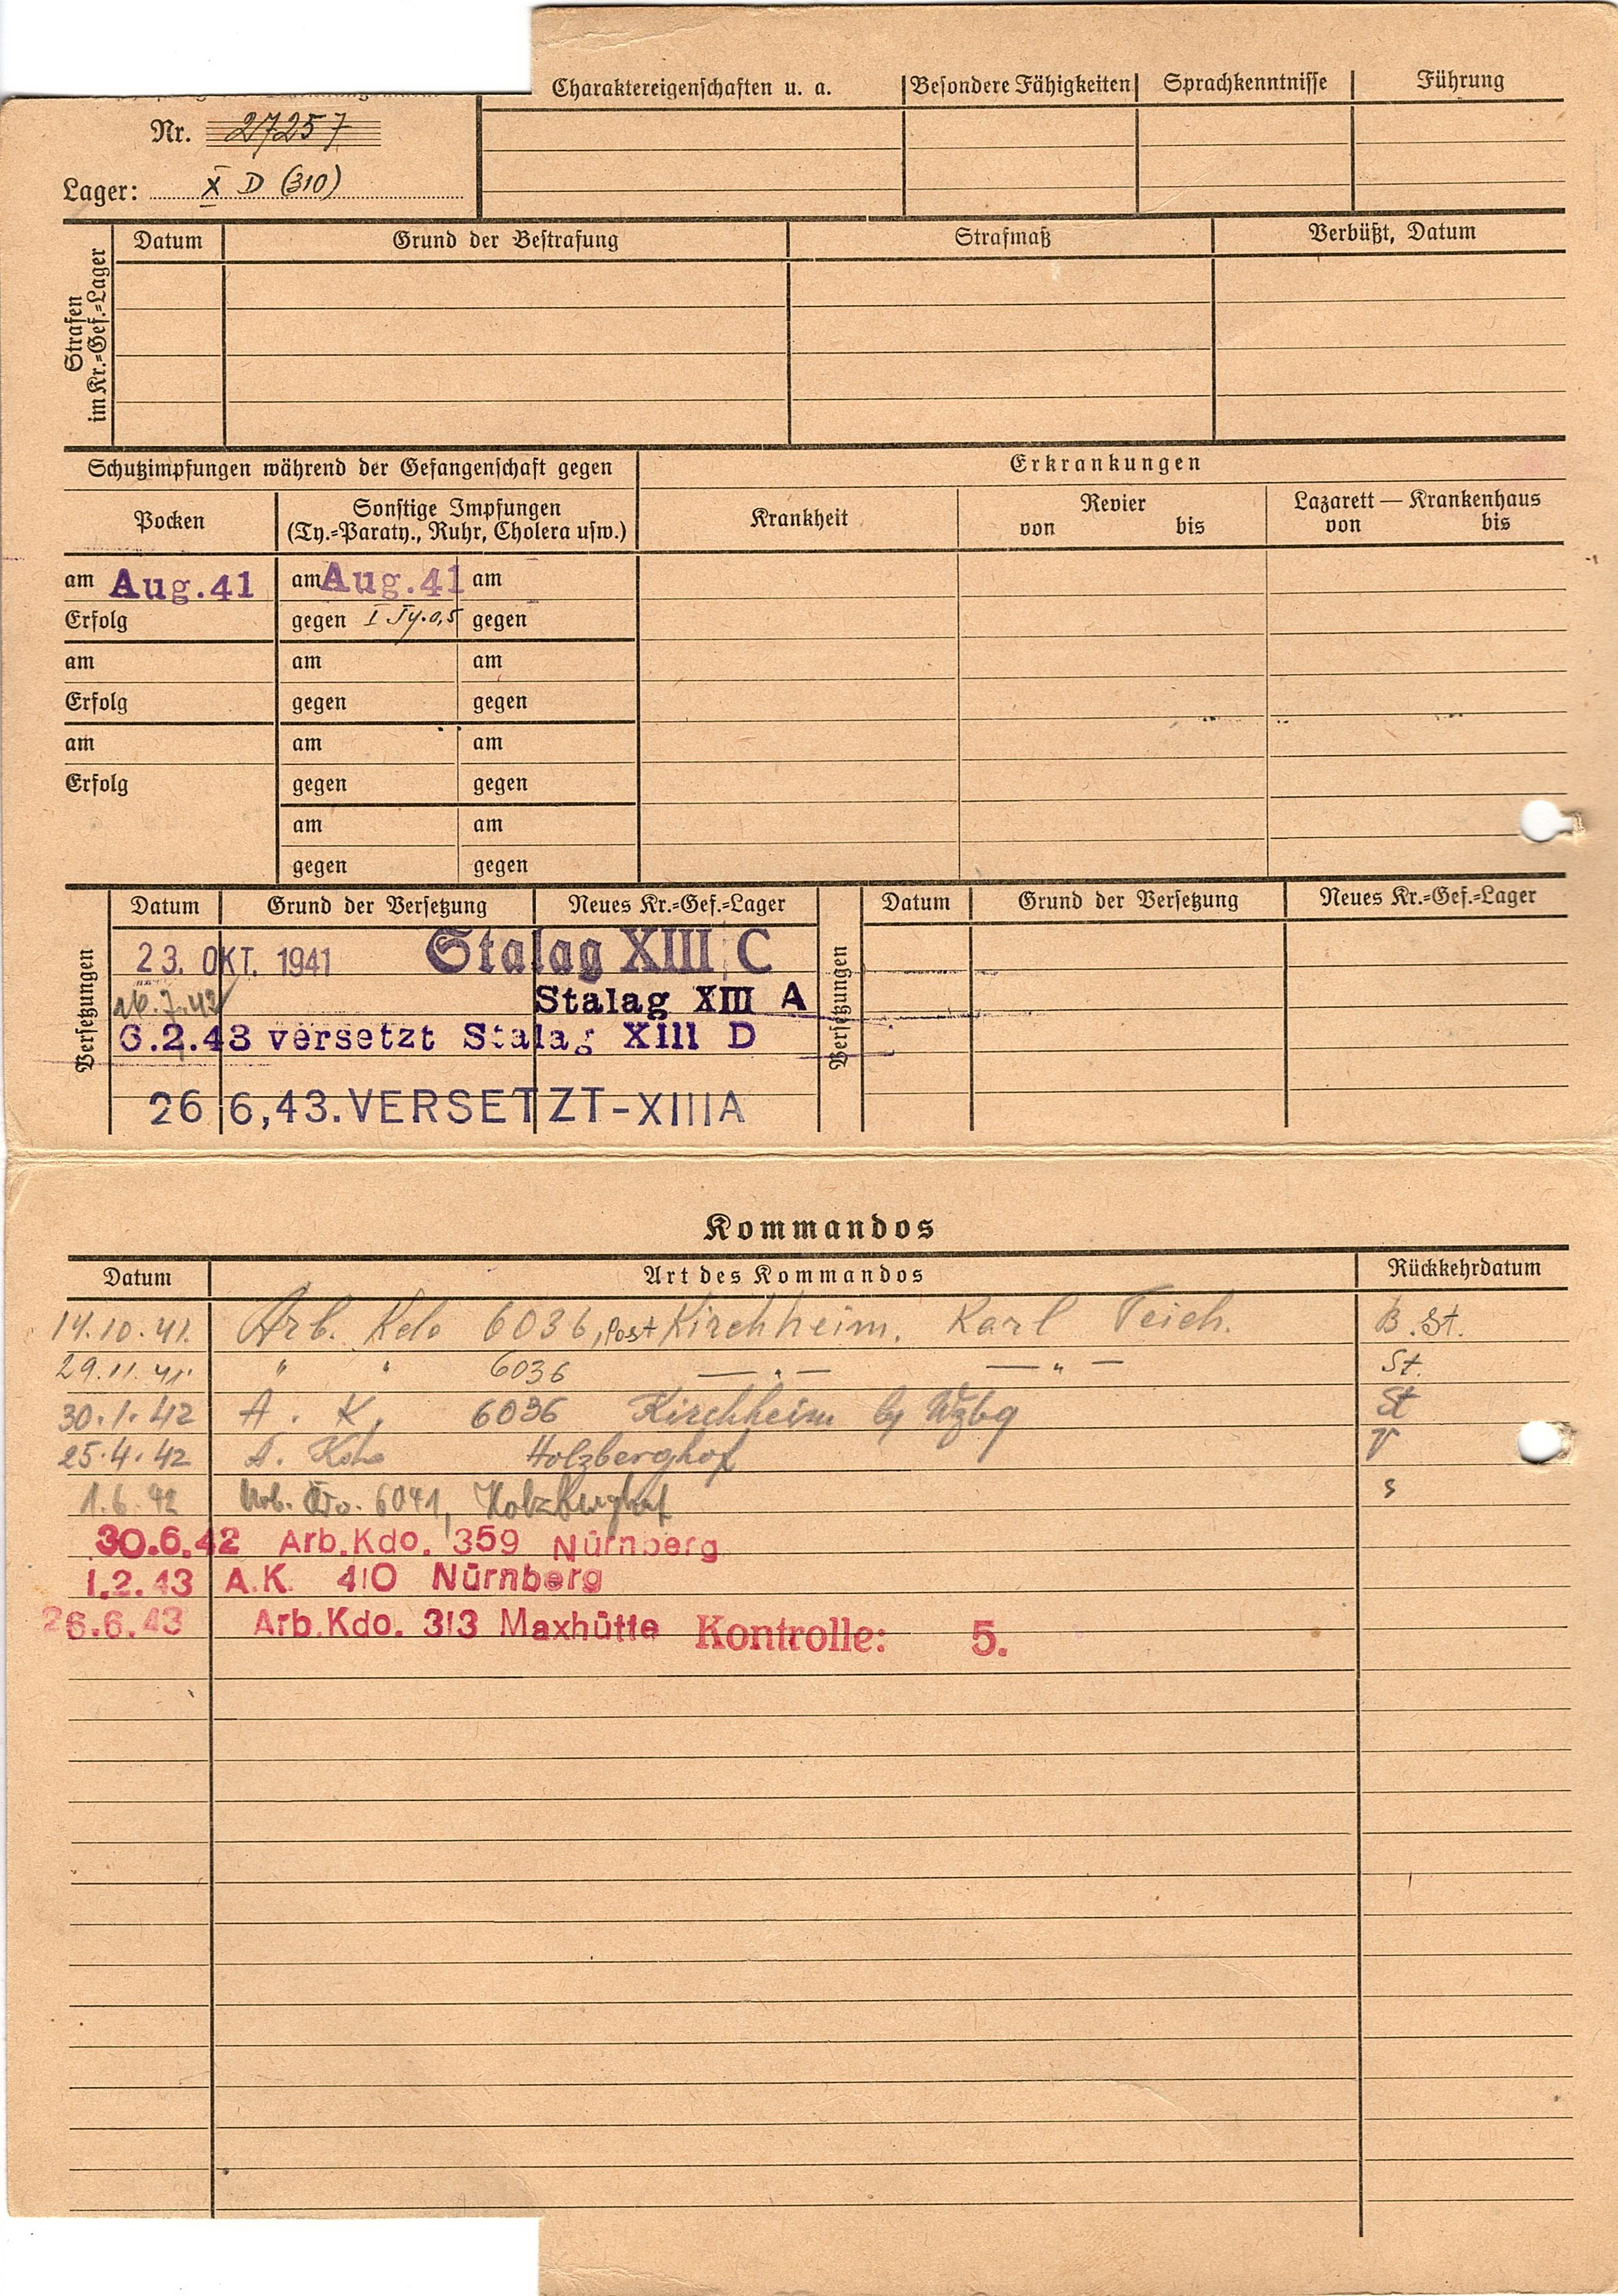 Charaktereigenschaften u. a. Besondere Fähigkeiten Sprachkenntnisse Führung
Nr. 27257
Lager: X D (310)
Strafen im Kr.=Gef.=Lager
Datum Grund der Bestrafung Strafmaß Verbüßt, Datum
Schutzimpfungen während der Gefangenschaft gegen
Erkrankungen
Pocken
Sonstige Impfungen
(Ty.=Paraty., Ruhr, Cholera usw.)
Krankheit
Revier
von bis
Lazarett — Krankenhaus
von bis
am Aug.41 am Aug.41 am
Erfolg gegen I Ty.0,5 gegen
am am am
Erfolg gegen gegen
am am am
Erfolg gegen gegen
am am
gegen gegen
Versetzungen
Datum Grund der Versetzung Neues Kr.=Gef.=Lager
23. OKT. 1941 Stalag XIII C
Stalag XIII A
6.2.43 versetzt Stalag XIII D
26 6,43.VERSETZT-XIIIA
Versetzungen
Datum Grund der Versetzung Neues Kr.=Gef.=Lager
Kommandos
Datum Art des Kommandos Rückkehrdatum
14.10.41. Arb. Kdo 6036, Post Kirchheim. Karl Teich. B.St.
29.11.41. " " 6036 — " — — " — St.
30.1.42 A. K. 6036 Kirchheim by Wzbg St
25.4.42 A. Kdo Holzberghof V
1.6.42 Arb. Kdo. 6041, Holzberghof s
30.6.42 Arb.Kdo. 359 Nürnberg
1.2.43 A.K. 410 Nürnberg
26.6.43 Arb.Kdo. 313 Maxhütte Kontrolle: 5.